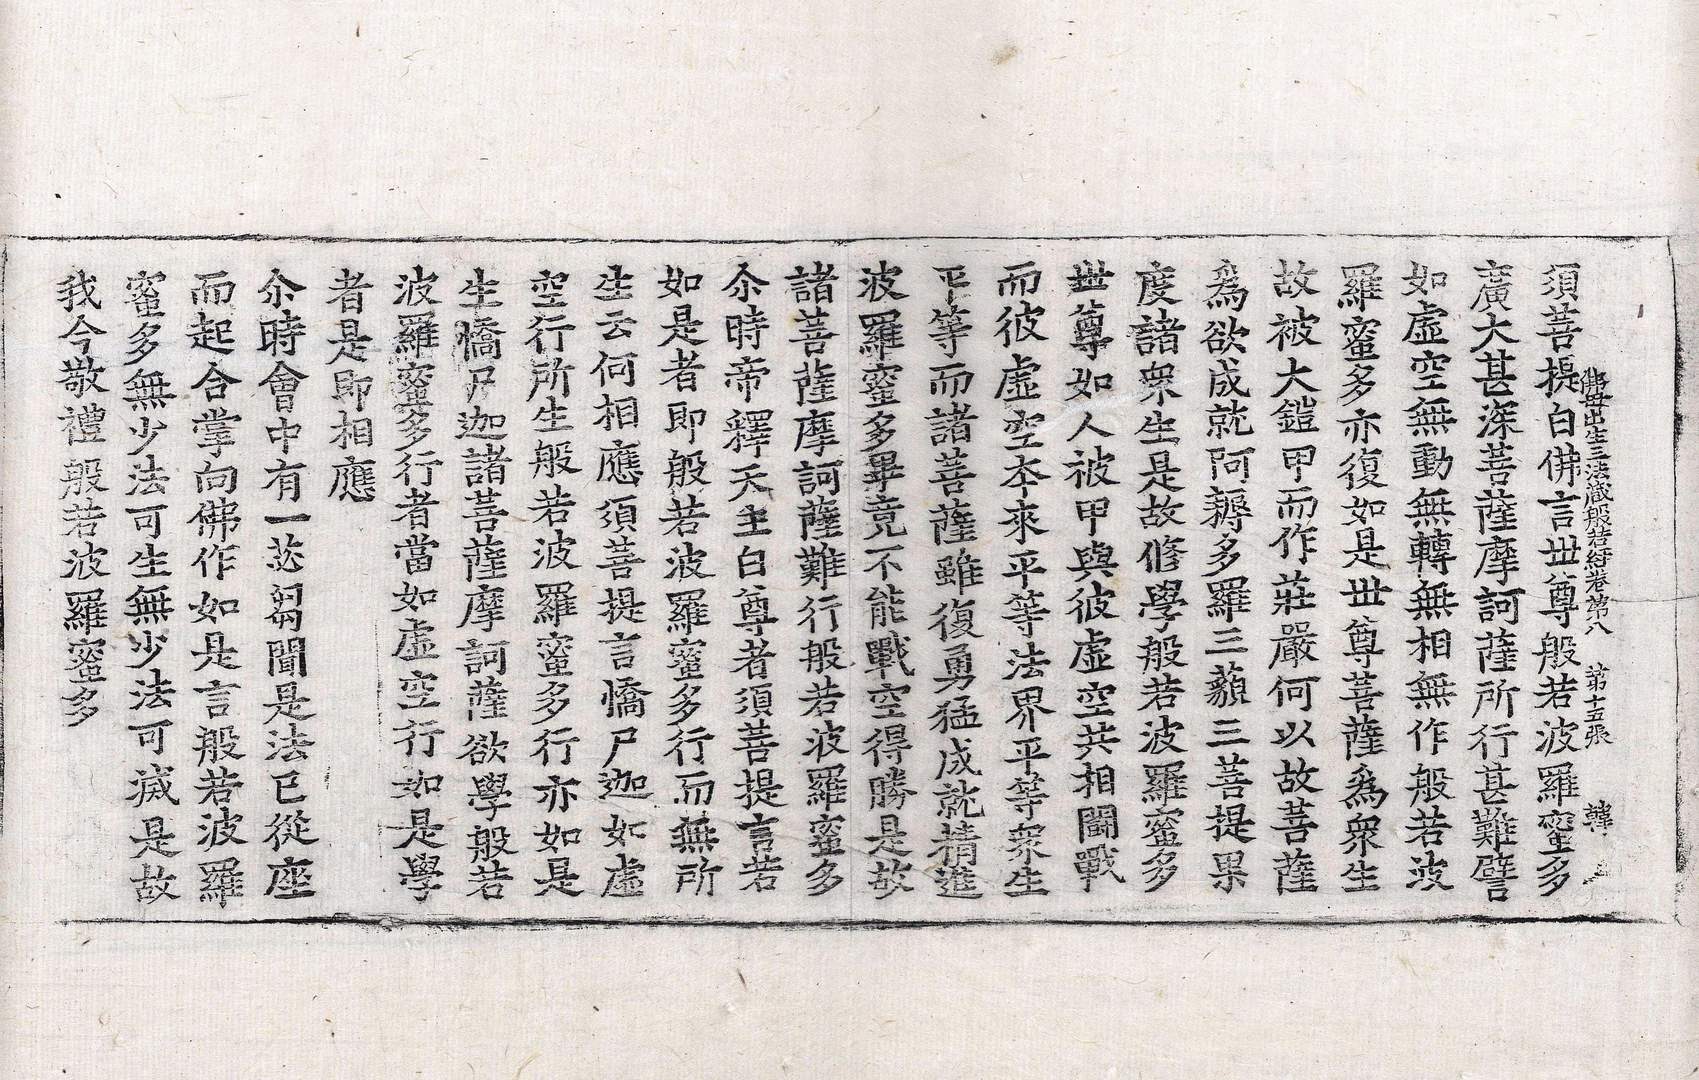 佛母出生三法藏般若經卷第八　第十五張　韓
須菩提白佛言世尊般若波羅蜜多
廣大甚深菩薩摩訶薩所行甚難譬
如虛空無動無轉無相無作般若波
羅蜜多亦復如是世尊菩薩爲衆生
故被大鎧甲而作莊嚴何以故菩薩
爲欲成就阿耨多羅三藐三菩提果
度諸衆生是故修學般若波羅蜜多
世尊如人被甲與彼虛空共相鬪戰
而彼虛空本來平等法界平等衆生
平等而諸菩薩雖復勇猛成就精進
波羅蜜多畢竟不能戰空得勝是故
諸菩薩摩訶薩難行般若波羅蜜多
尒時帝釋天主白尊者須菩提言若
如是者即般若波羅蜜多行而無所
生云何相應須菩提言憍尸迦如虛
空行所生般若波羅蜜多行亦如是
生憍尸迦諸菩薩摩訶薩欲學般若
波羅蜜多行者當如虛空行如是學
者是即相應
尒時會中有一苾芻聞是法已從座
而起合掌向佛作如是言般若波羅
蜜多無少法可生無少法可滅是故
我今敬禮般若波羅蜜多